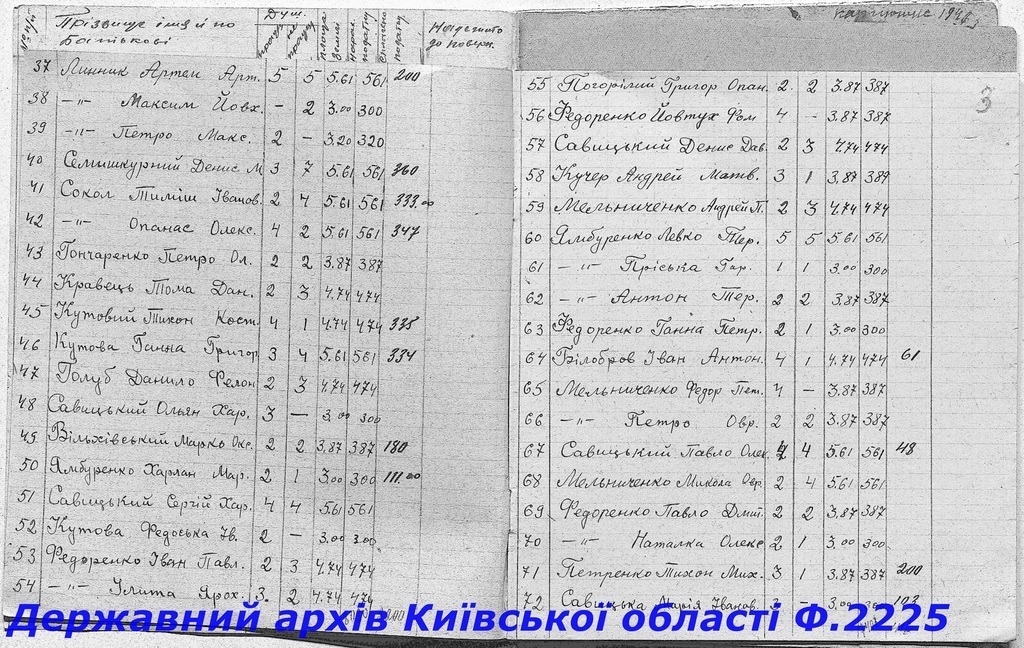 № п/п Прізвище імя й по Батькові Душ. працез. не працез. площа землі нарах. податку сплачено податку Належить до поверн.
37 Линник Артем Арт. 5 5 5.61 561 200
38 –"– Максим Йовх. – 2 3.00 300
39 –"– Петро Макс. 2 – 3.20 320
40 Семишкурний Денис М 3 7 5.61 561 360
41 Сокол Тиміш Іванов. 2 4 5.61 561 333.00
42 –"– Опанас Олекс. 4 2 5.61 561 347
43 Гончаренко Петро Ол. 2 2 3.87 387
44 Кравець Тома Дан. 2 3 4.74 474
45 Кутовий Тихон Кост. 4 1 4.74 474 338
46 Кутова Ганна Григор 3 4 5.61 561 334
47 Голуб Данило Фелон 2 3 4.74 474
48 Савицький Ольян Хар. 3 – 3.00 300
49 Вільхівський Марко Окс. 2 2 3.87 387 180
50 Ямбуренко Харлан Мар. 2 1 3.00 300 111.00
51 Савицький Сергій Хар. 4 4 5.61 561
52 Кутова Федоська Ів. 2 – 3.00 300
53 Федоренко Іван Павл. 2 3 4.74 474
54 –"– Улита Ярох. 3. 2 4.74 474
3
55 Погорілий Григор Опан. 2. 2 3.87 387
56 Федоренко Йовтух Фом 4 – 3.87 387
57 Савицький Денис Дав. 2 3 4.74 474
58 Кучер Андрей Матв. 3 1 3.87 387
59 Мельниченко Андрей П. 2 3 4.74 474
60 Ямбуренко Левко Тер. 5 5 5.61 561
61 –"– Пріська Гор. 1 1 3.00 300
62 –"– Антон Тер. 2 2 3.87 387
63 Федоренко Ганна Петр. 2 1 3.00 300
64 Білобров Іван Антон. 4 1 4.74 474 61
65 Мельниченко Федор Пет. 4 – 3.87 387
66 –"– Петро Овр. 2 2 3.87 387
67 Савицький Павло Олек. 4 5.61 561 48
68 Мельниченко Микола Овр. 2 4 5.61 561
69 Федоренко Павло Дмит. 2 2 3.87 387
70 –"– Наталка Олекс 2 1 3.00 300
71 Петренко Тихон Мих. 3 1 3.87 387 200
72 Савицька Марія Іванов. – 3.00 300 103
Державний архів Київської області Ф.2225